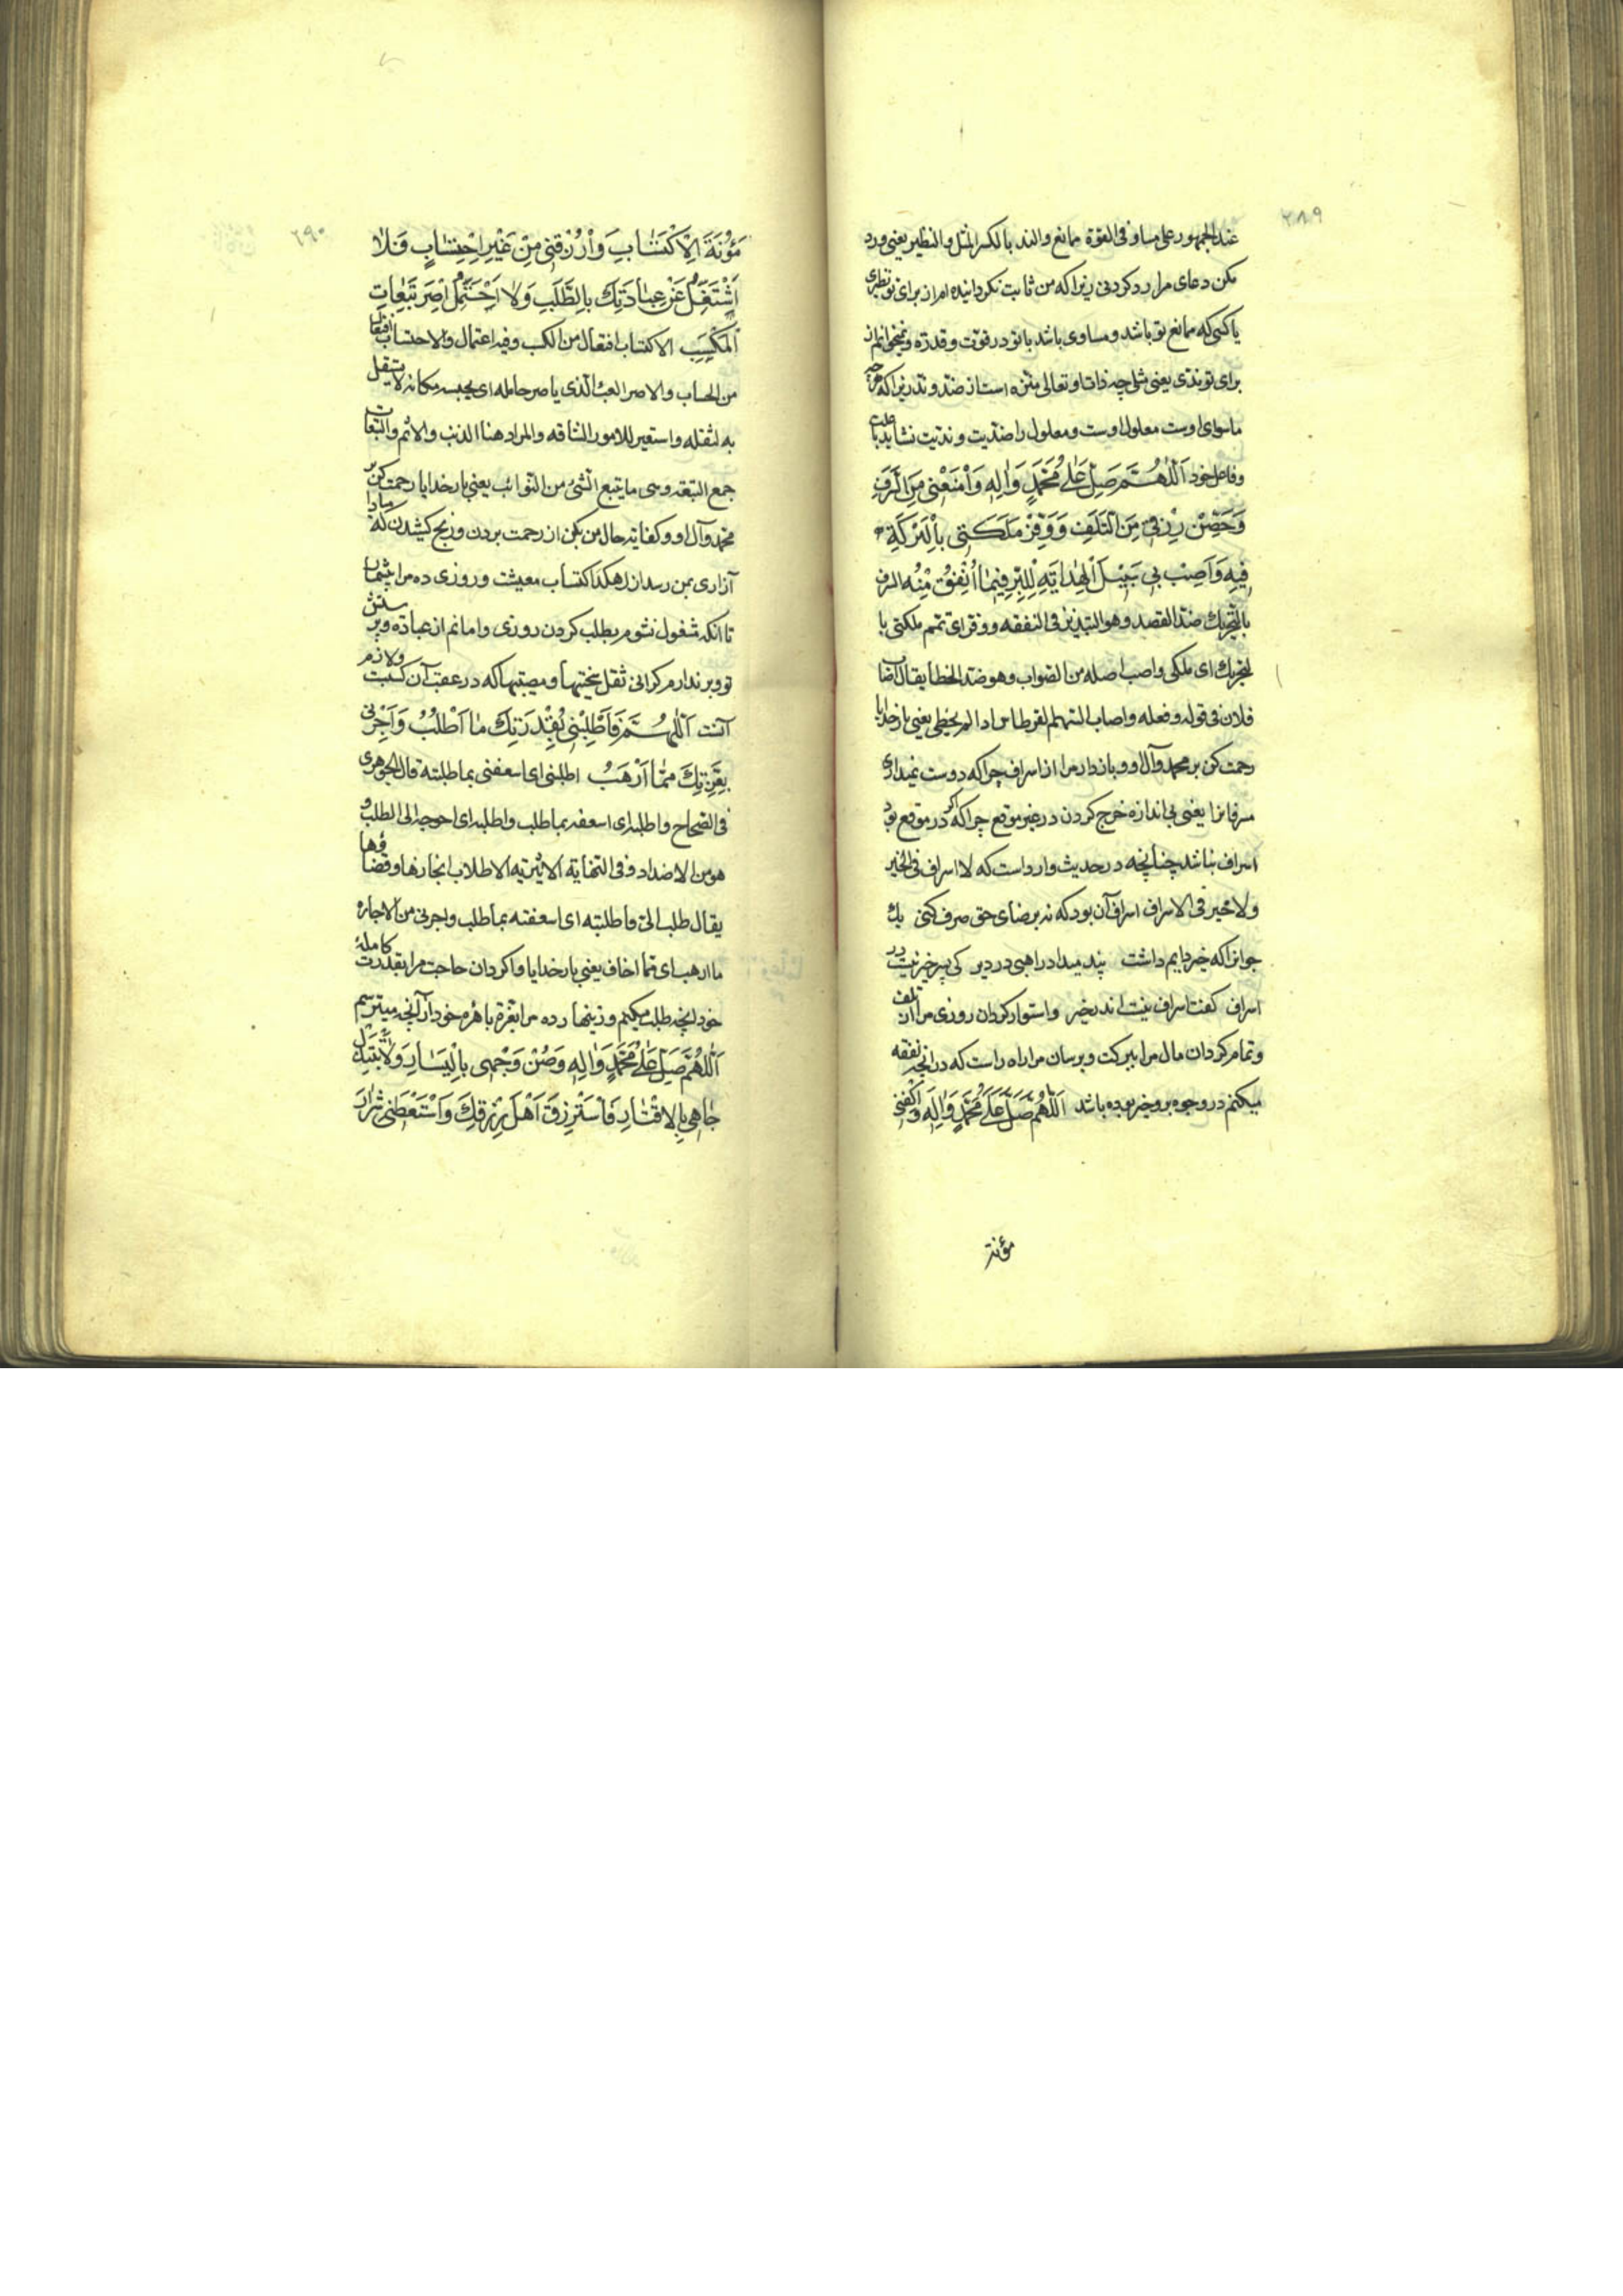 ۲۸۹
عند الجمهور علی مساو فی القوة ممانع والند بالکسر المثل والنظیر یعنی ورد
مکن دعای مرا رد کردنی زیرا که من ثابت نکردانیده ام از برای تو نظیری
یا کسی که ممانع تو باشد و مساوی باشد با تو در قوت و قدرة و نمیخوانم از
برای تو ندی یعنی مثلی چه ذات او تعالی منزه است از ضد و ند زیرا که هرچه
ماسوای اوست معلول اوست و معلول را ضدیت و ندیت نشاید با علت
و فاعل خود اَللّٰهُمَّ صَلِّ عَلٰی مُحَمَّدٍ وَاٰلِهِ وَامْنَعْنِی مِنَ السَّرَفِ
وَحَصِّنْ رِزْقِی مِنَ التَّلَفِ وَوَفِّرْ مَلَکَتِی بِالْبَرَکَةِ
فِیهِ وَاَصِبْ بِی سَبِیلَ الْهِدَایَةِ لِلْبِرِّ فِیمَا اُنْفِقُ مِنْهُ السرف
بالتحریک ضد القصد وهو التبذیر فی النفقه ووفر ای تمم ملکتی با
لتحریک ای ملکی واصب اصله من الصواب وهو ضد الخطا یقال اصاب
فلان فی قوله وفعله واصاب السهم القرطاس اذا لم یخطی یعنی بارخدایا
رحمت کن بر محمد وآل او و بازدار مرا از اسراف چرا که دوست نمیداری
مسرفانرا یعنی بی اندازه خرج کردن در غیر موقع چرا که اگر در موقع بود
اسراف نباشد چنانچه در حدیث وارد است که لا اسراف فی الخیر
ولا خیر فی الاسراف اسراف آن بود که نه برضای حق صرف کنی یک
جوانرا که خیر دایم داشت پند میداد راهبی در دیر کی پسر خیر نیست در
اسراف گفت اسراف نیست اندر خیر واستوار کردان روزی مرا از تلف
و تمام کردان مال مرا ببرکت و برسان مرا راه راست که در آنچه نفقه
میکنم در وجوه بر و خیر بوده باشد اَللّٰهُمَّ صَلِّ عَلٰی مُحَمَّدٍ وَاٰلِهِ وَاکْفِنِی
مؤنة
۲۹۰
مَؤُنَةَ الْاِکْتِسَابِ وَارْزُقْنِی مِنْ غَیْرِ احْتِسَابٍ فَلَا
اَشْتَغِلَ عَنْ عِبَادَتِکَ بِالطَّلَبِ وَلَا اَحْتَمِلَ اِصْرَ تَبِعَاتِ
الْمَکْسَبِ الاکتساب افتعال من الکسب وفیه اعتمال والاحتساب افتعال
من الحساب والاصر العبء الذی یاصر حامله ای یحبسه مکانه لا یستقل
به لثقله واستعیر للامور الشاقه والمراد هنا الذنب والاثم والتبعات
جمع التبعة وهی ما یتبع الشیء من النوائب یعنی بارخدایا رحمت کن بر
محمد وآل او و کفایة حال من بکن از زحمت بردن و رنج کشیدن که مبادا
آزاری بمن رسد از رهکذر اکتساب معیشت و روزی ده مرا بیشمار
تا آنکه مشغول نشوم بطلب کردن روزی و امانم از عبادة و پرستش
تو و برندارم کرانی ثقل سختیها و مصیبتها که در عقب آن کسبت ولازم
آنست اَللّٰهُمَّ فَاَطْلِبْنِی بِقُدْرَتِکَ مَا اَطْلُبُ وَاَجِرْنِی
بِعِزَّتِکَ مِمَّا اَرْهَبُ اطلبنی ای اسعفنی بما طلبته قال الجوهری
فی الصحاح واطلبه ای اسعفه بما طلب واطلبه ای احوجه الی الطلب و
هو من الاضداد وفی النهایة الاثیریه الاطلاب انجازها وقضاؤها
یقال طلب الی فاطلبته ای اسعفته بما طلب واجرنی من الاجاره
مما ارهب ای مما اخاف یعنی بارخدایا واکردان حاجت مرا بقدرت کاملهٔ
خود آنچه طلب میکنم و زینهار ده مرا بعزة باهره خود از آنچه میترسم
اَللّٰهُمَّ صَلِّ عَلٰی مُحَمَّدٍ وَاٰلِهِ وَصُنْ وَجْهِی بِالْیَسَارِ وَلَا تَبْتَذِلْ
جَاهِی بِالْاِقْتَارِ فَاَسْتَرْزِقَ اَهْلَ رِزْقِکَ وَاَسْتَعْطِیَ شِرَارَ